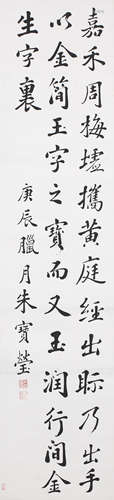 嘉禾周梅墟攜黃庭經出眎乃出手
以金簡玉字之寶而又玉潤行間金
生字裏
庚辰臘月朱寶瑩